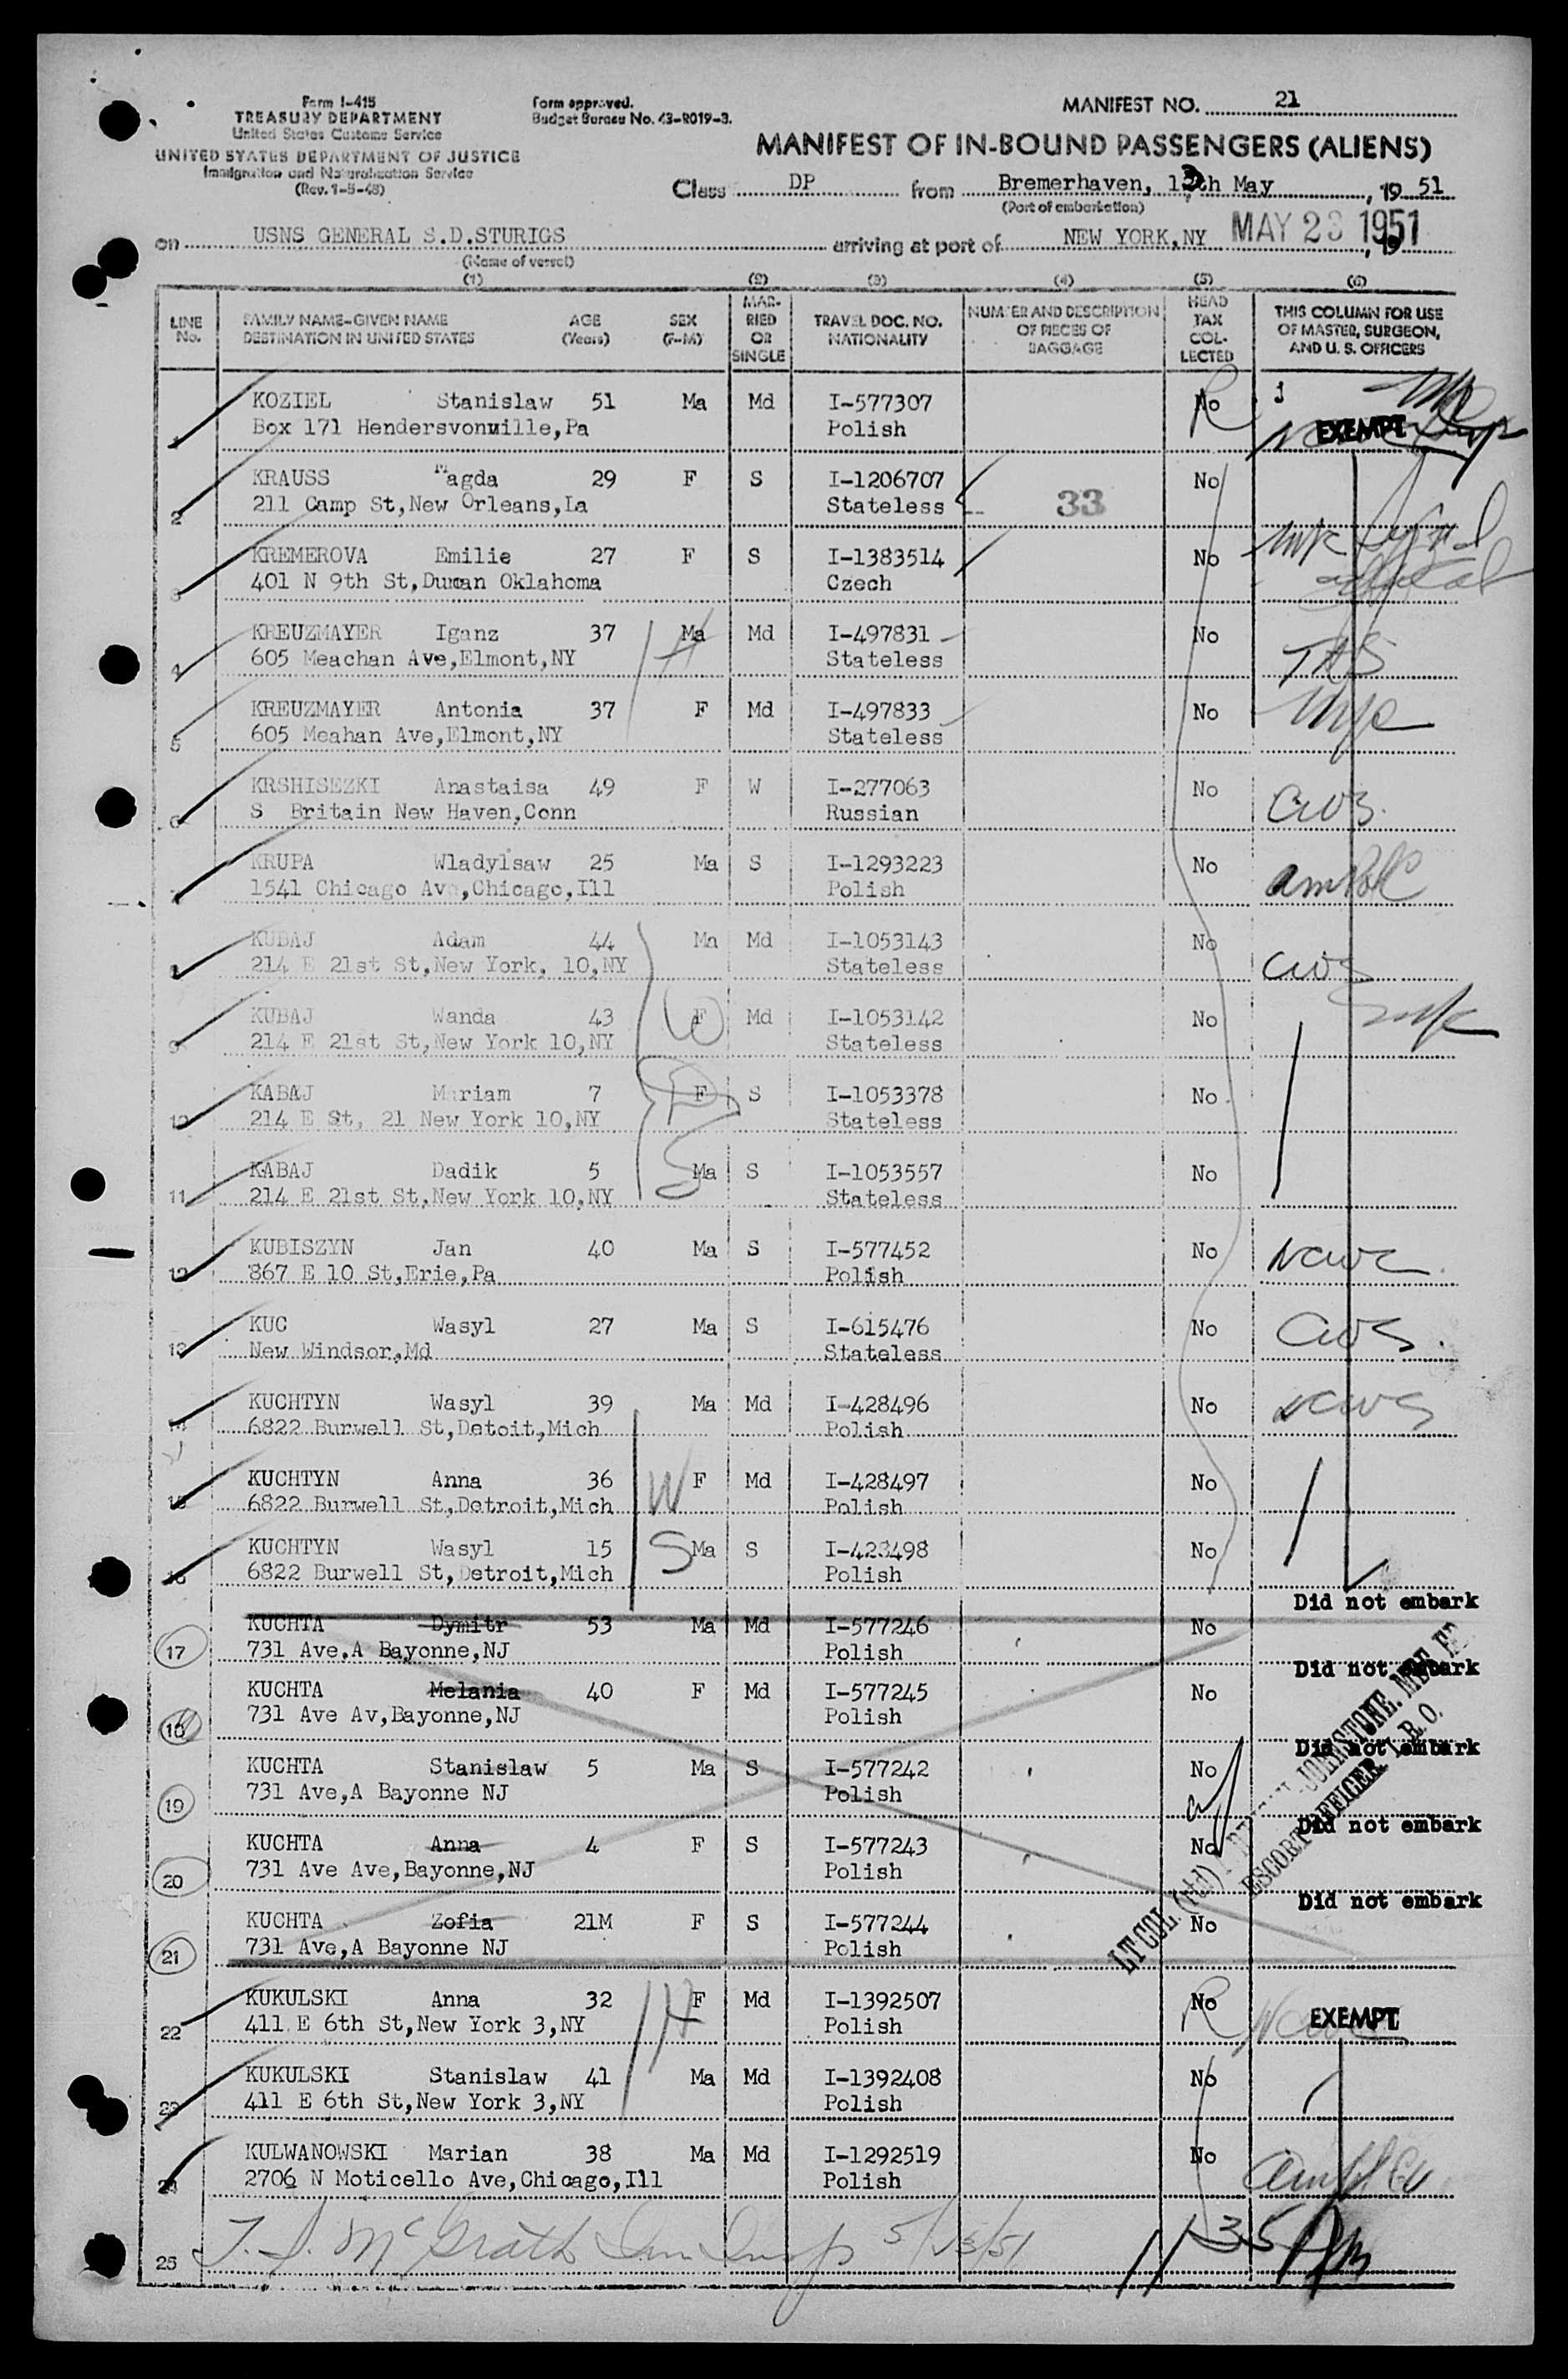 Form I-415
TREASURY DEPARTMENT
United States Customs Service
UNITED STATES DEPARTMENT OF JUSTICE
Immigration and Naturalization Service
(Rev. 1-5-48)
Form approved.
Budget Bureau No. 43-R019-3.
MANIFEST NO. 21
MANIFEST OF IN-BOUND PASSENGERS (ALIENS)
Class DP from Bremerhaven, 13th May, 19 51
(Port of embarkation)
on USNS GENERAL S.D.STURIGS arriving at port of NEW YORK,NY MAY 23 1951, 19
(Name of vessel)
(1) (2) (3) (4) (5) (6)
LINE No. FAMILY NAME-GIVEN NAME DESTINATION IN UNITED STATES AGE (Years) SEX (F-M) MARRIED OR SINGLE TRAVEL DOC. NO. NATIONALITY NUMBER AND DESCRIPTION OF PIECES OF BAGGAGE HEAD TAX COLLECTED THIS COLUMN FOR USE OF MASTER, SURGEON, AND U. S. OFFICERS
1 KOZIEL Stanislaw 51 Ma Md I-577307 No R EXEMPT
Box 171 Hendersvonville,Pa Polish
2 KRAUSS Magda 29 F S I-1206707 No
211 Camp St,New Orleans,La Stateless 33
3 KREMEROVA Emilie 27 F S I-1383514 No
401 N 9th St,Duncan Oklahoma Czech
4 KREUZMAYER Iganz 37 H Ma Md I-497831 No
605 Meachan Ave,Elmont,NY Stateless
5 KREUZMAYER Antonia 37 F Md I-497833 No
605 Meahan Ave,Elmont,NY Stateless
6 KRSHISEZKI Anastaisa 49 F W I-277063 No CWS
S Britain New Haven,Conn Russian
7 KRUPA Wladylsaw 25 Ma S I-1293223 No
1541 Chicago Ave,Chicago,Ill Polish
8 KUBAJ Adam 44 Ma Md I-1053143 No CWS
214 E 21st St,New York, 10,NY Stateless
9 KUBAJ Wanda 43 W F Md I-1053142 No
214 E 21st St,New York 10,NY Stateless
10 KABAJ Mariam 7 D F S I-1053378 No
214 E St, 21 New York 10,NY Stateless
11 KABAJ Dadik 5 S Ma S I-1053557 No
214 E 21st St,New York 10,NY Stateless
12 KUBISZYN Jan 40 Ma S I-577452 No NCWC
867 E 10 St,Erie,Pa Polish
13 KUC Wasyl 27 Ma S I-615476 No CWS
New Windsor,Md Stateless
14 KUCHTYN Wasyl 39 Ma Md I-428496 No
6822 Burwell St,Detoit,Mich Polish
15 KUCHTYN Anna 36 W F Md I-428497 No
6822 Burwell St,Detroit,Mich Polish
16 KUCHTYN Wasyl 15 S Ma S I-428498 No
6822 Burwell St,Detroit,Mich Polish
Did not embark
17 KUCHTA Dymitr 53 Ma Md I-577246 No
731 Ave.A Bayonne,NJ Polish
Did not embark
18 KUCHTA Melania 40 F Md I-577245 No
731 Ave Av,Bayonne,NJ Polish
Did not embark
19 KUCHTA Stanislaw 5 Ma S I-577242 No
731 Ave,A Bayonne NJ Polish
Did not embark
20 KUCHTA Anna 4 F S I-577243 No
731 Ave Ave,Bayonne,NJ Polish
Did not embark
21 KUCHTA Zofia 21M F S I-577244 No
731 Ave,A Bayonne NJ Polish
LT COL. (rtd) JOHNSTONE. MBE
ESCORT OFFICER I.R.O.
22 KUKULSKI Anna 32 H F Md I-1392507 No R EXEMPT
411 E 6th St,New York 3,NY Polish
23 KUKULSKI Stanislaw 41 Ma Md I-1392408 No
411 E 6th St,New York 3,NY Polish
24 KULWANOWSKI Marian 38 Ma Md I-1292519 No
2706 N Moticello Ave,Chicago,Ill Polish
25 T. J. McGrath Imm Insp 5/23/51 1135 Pm